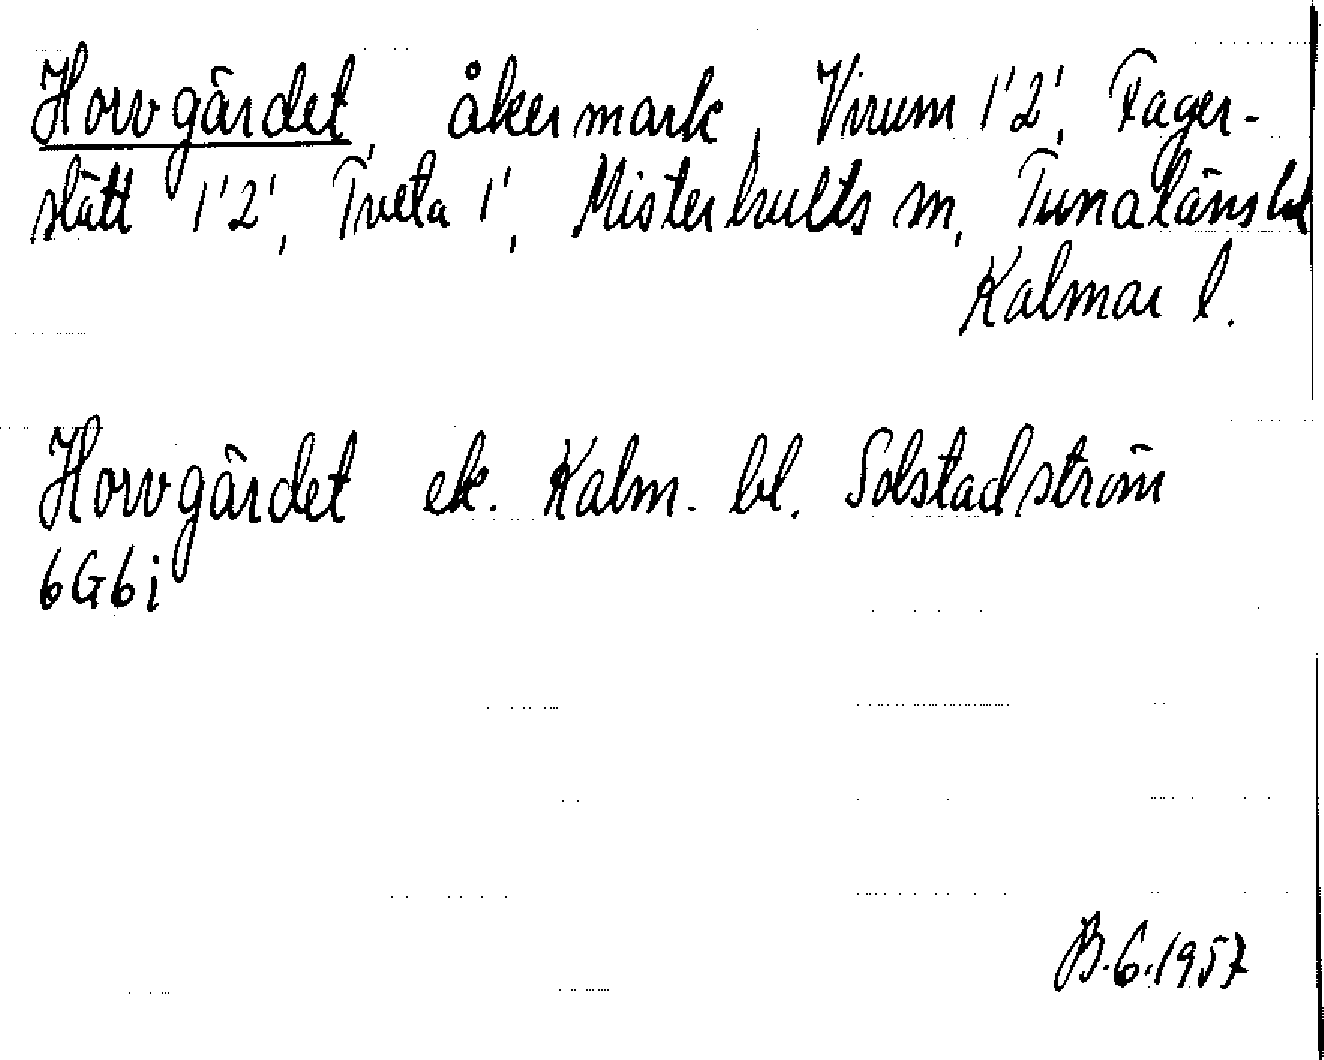 Horvgärdet, åkermark, Virum 1'2', Fager-
slätt 1'2', Tveta 1', Misterhults sn, Tunalänshd
Kalmar l.
Horvgärdet ek. Kalm. bl. Solstadström
6G6i
B.G.1957